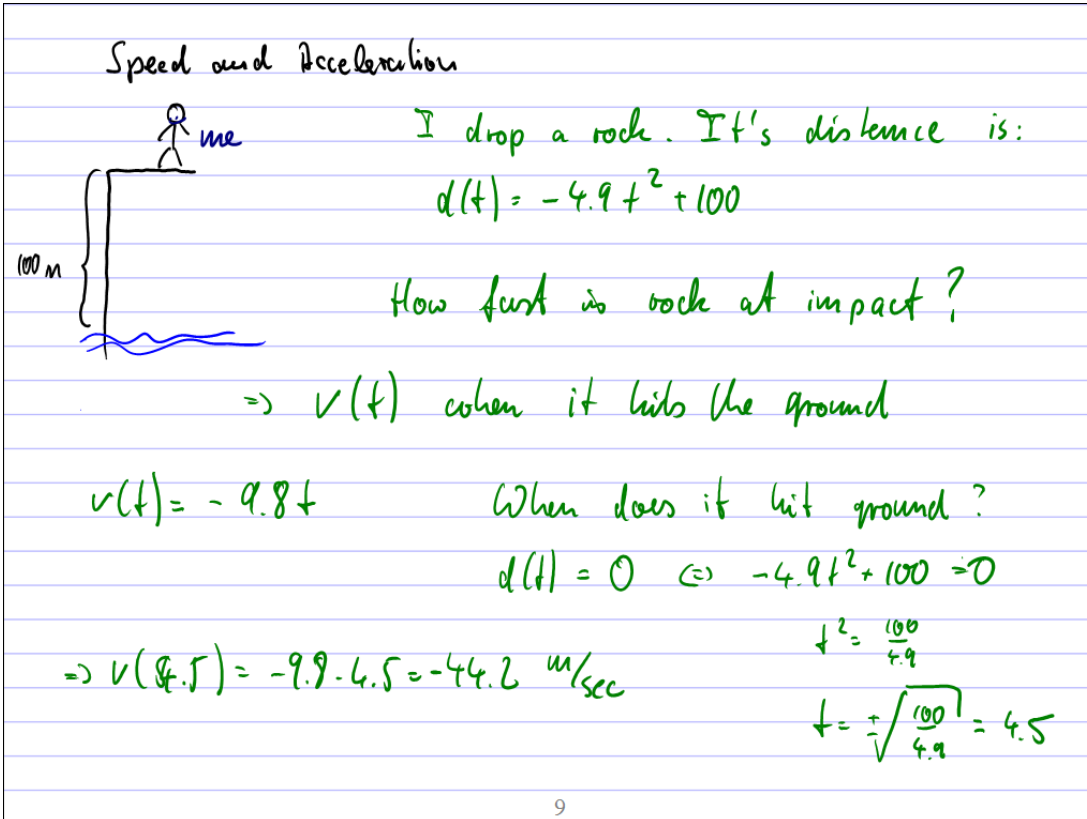 Speed and Acceleration
me
I drop a rock. It's distance is:
d(t) = -4.9 t² + 100
100 m
How fast is rock at impact?
=> v(t) when it hits the ground
v(t) = - 9.8 t
When does it hit ground?
d(t) = 0 <=> -4.9 t² + 100 = 0
t² = 100/4.9
=> v(4.5) = -9.8 · 4.5 = -44.2 m/sec
t = ±√(100/4.9) = 4.5
9